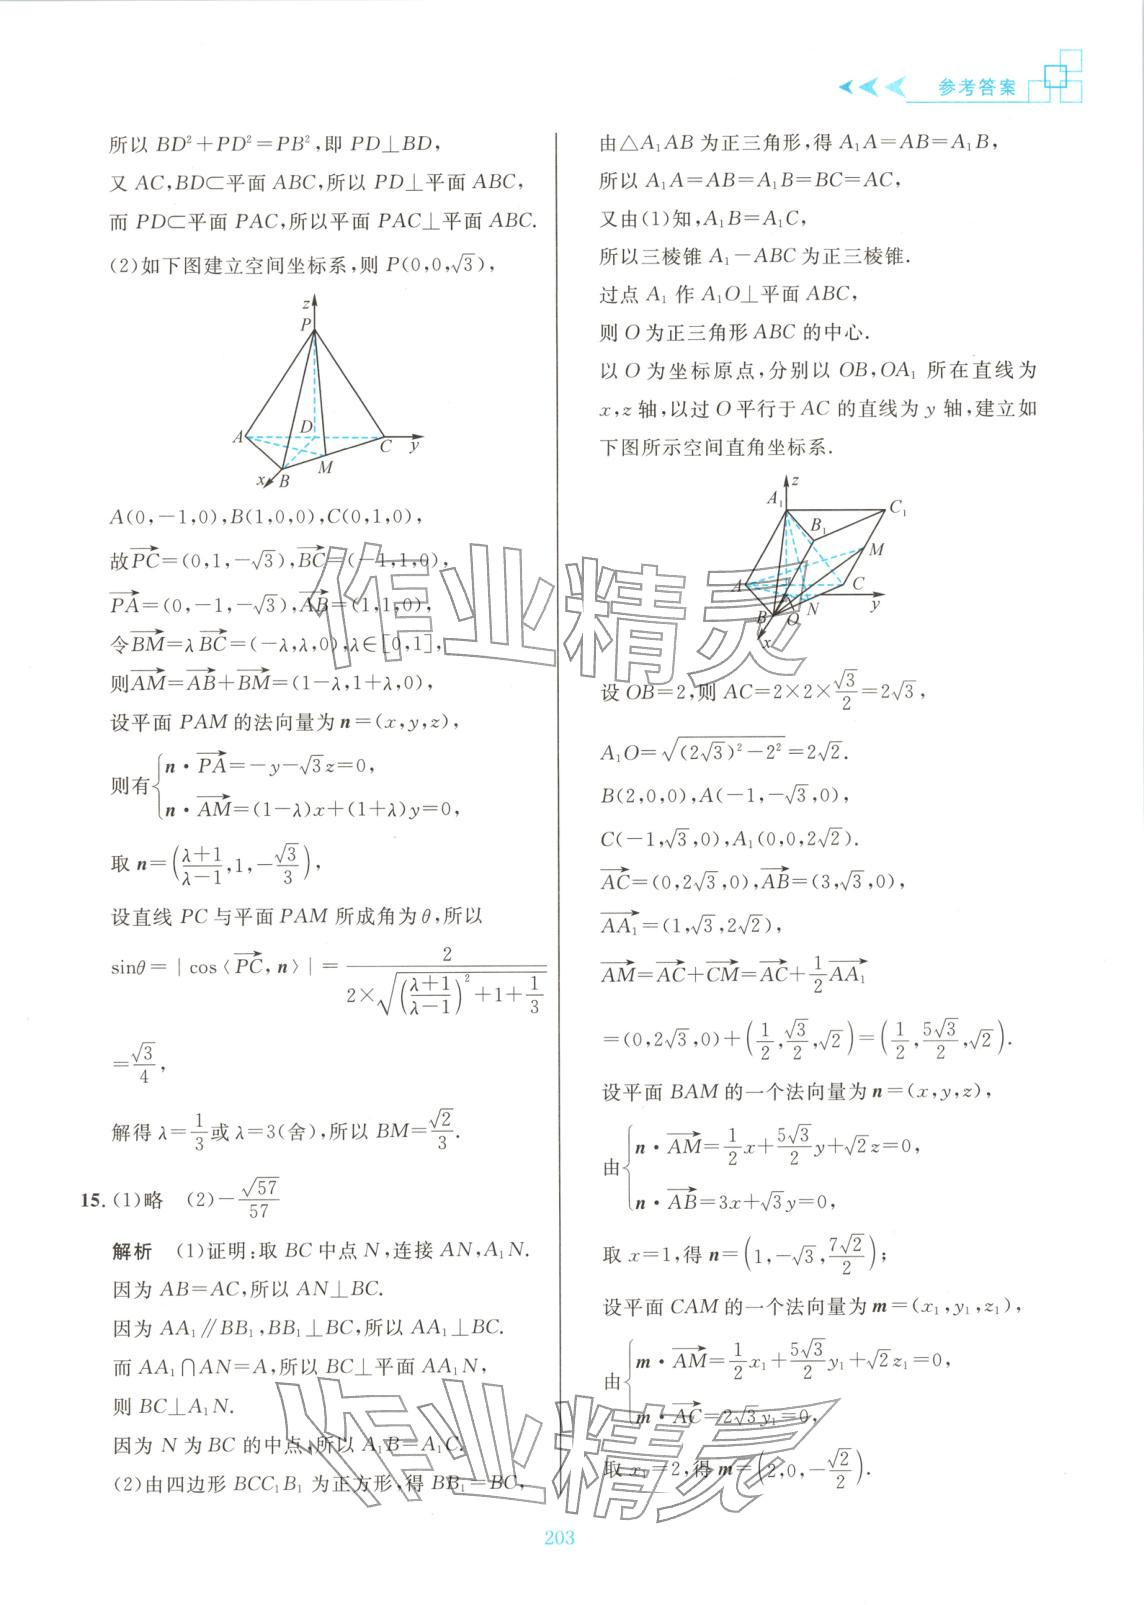 参考答案
所以 BD²+PD²=PB²,即 PD⊥BD,
又 AC,BD⊂平面 ABC,所以 PD⊥平面 ABC,
而 PD⊂平面 PAC,所以平面 PAC⊥平面 ABC.
(2)如下图建立空间坐标系,则 P(0,0,√3),
z
P
A
D
C
y
x
B
M
A(0,-1,0),B(1,0,0),C(0,1,0),
故PC→=(0,1,-√3),BC→=(-1,1,0),
PA→=(0,-1,-√3),AB→=(1,1,0),
令BM→=λBC→=(-λ,λ,0),λ∈[0,1],
则AM→=AB→+BM→=(1-λ,1+λ,0),
设平面 PAM 的法向量为 n=(x,y,z),
则有{n·PA→=-y-√3z=0,
n·AM→=(1-λ)x+(1+λ)y=0,
取 n=((λ+1)/(λ-1),1,-√3/3),
设直线 PC 与平面 PAM 所成角为θ,所以
sinθ=|cos〈PC→,n〉|=2/(2×√(((λ+1)/(λ-1))²+1+1/3))
=√3/4,
解得 λ=1/3或 λ=3(舍),所以 BM=√2/3.
15.(1)略 (2)-√57/57
解析 (1)证明:取 BC 中点 N,连接 AN,A₁N.
因为 AB=AC,所以 AN⊥BC.
因为 AA₁∥BB₁,BB₁⊥BC,所以 AA₁⊥BC.
而 AA₁∩AN=A,所以 BC⊥平面 AA₁N,
则 BC⊥A₁N.
因为 N 为 BC 的中点,所以 A₁B=A₁C.
(2)由四边形 BCC₁B₁ 为正方形,得 BB₁=BC,
由△A₁AB 为正三角形,得 A₁A=AB=A₁B,
所以 A₁A=AB=A₁B=BC=AC,
又由(1)知,A₁B=A₁C,
所以三棱锥 A₁-ABC 为正三棱锥.
过点 A₁ 作 A₁O⊥平面 ABC,
则 O 为正三角形 ABC 的中心.
以 O 为坐标原点,分别以 OB,OA₁ 所在直线为
x,z 轴,以过 O 平行于 AC 的直线为 y 轴,建立如
下图所示空间直角坐标系.
z
A₁
C₁
B₁
M
A
C
N
y
B
O
x
设 OB=2,则 AC=2×2×√3/2=2√3,
A₁O=√((2√3)²-2²)=2√2.
B(2,0,0),A(-1,-√3,0),
C(-1,√3,0),A₁(0,0,2√2).
AC→=(0,2√3,0),AB→=(3,√3,0),
AA₁→=(1,√3,2√2),
AM→=AC→+CM→=AC→+1/2AA₁→
=(0,2√3,0)+(1/2,√3/2,√2)=(1/2,5√3/2,√2).
设平面 BAM 的一个法向量为 n=(x,y,z),
由{n·AM→=1/2x+5√3/2y+√2z=0,
n·AB→=3x+√3y=0,
取 x=1,得 n=(1,-√3,7√2/2);
设平面 CAM 的一个法向量为 m=(x₁,y₁,z₁),
由{m·AM→=1/2x₁+5√3/2y₁+√2z₁=0,
m·AC→=2√3y₁=0,
取 x₁=2,得 m=(2,0,-√2/2).
作业精灵
作业精灵
203